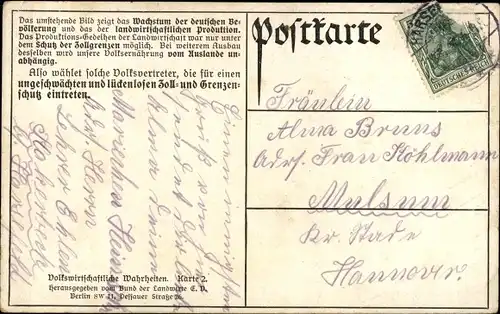 Das umstehende Bild zeigt das Wachstum der deutschen Be-
völkerung und das der landwirtschaftlichen Produktion.
Das Produktions-Gedeihen der Landwirtschaft war nur unter
dem Schutz der Zollgrenzen möglich. Bei weiterem Ausbau
desselben wird unsere Volksernährung vom Auslande un-
abhängig.
Also wählet solche Volksvertreter, die für einen
ungeschwächten und lückenlosen Zoll- und Grenzen-
schutz eintreten.
Postkarte
DEUTSCHES REICH
Fräulein
Alma Bruns
Adr. Frau Köhlmann
Mulsum
Kr. Stade
Hannover.
Einen
Gruß
sendet
Alma
Mariechen
Adr. Herrn
Lehrer
Volkswirtschaftliche Wahrheiten. Karte 2.
Herausgegeben vom Bund der Landwirte E. V.
Berlin SW 11, Dessauer Straße 26.